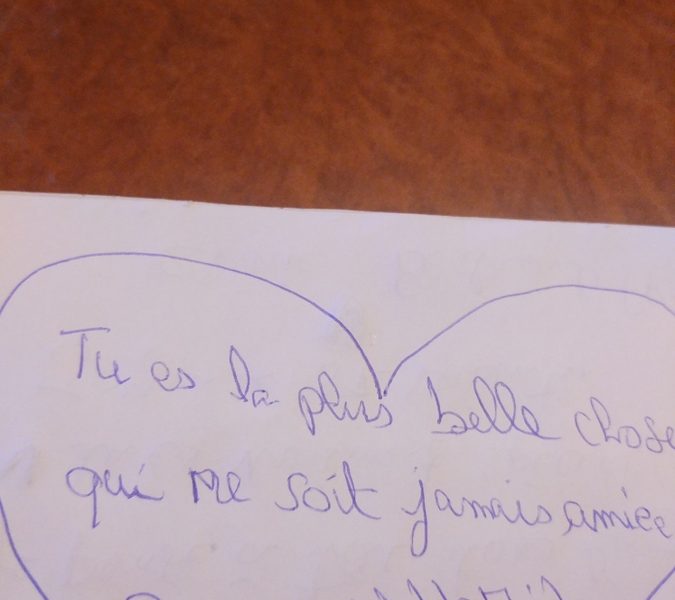 Tu es la plus belle chose
qui me soit jamais amiée